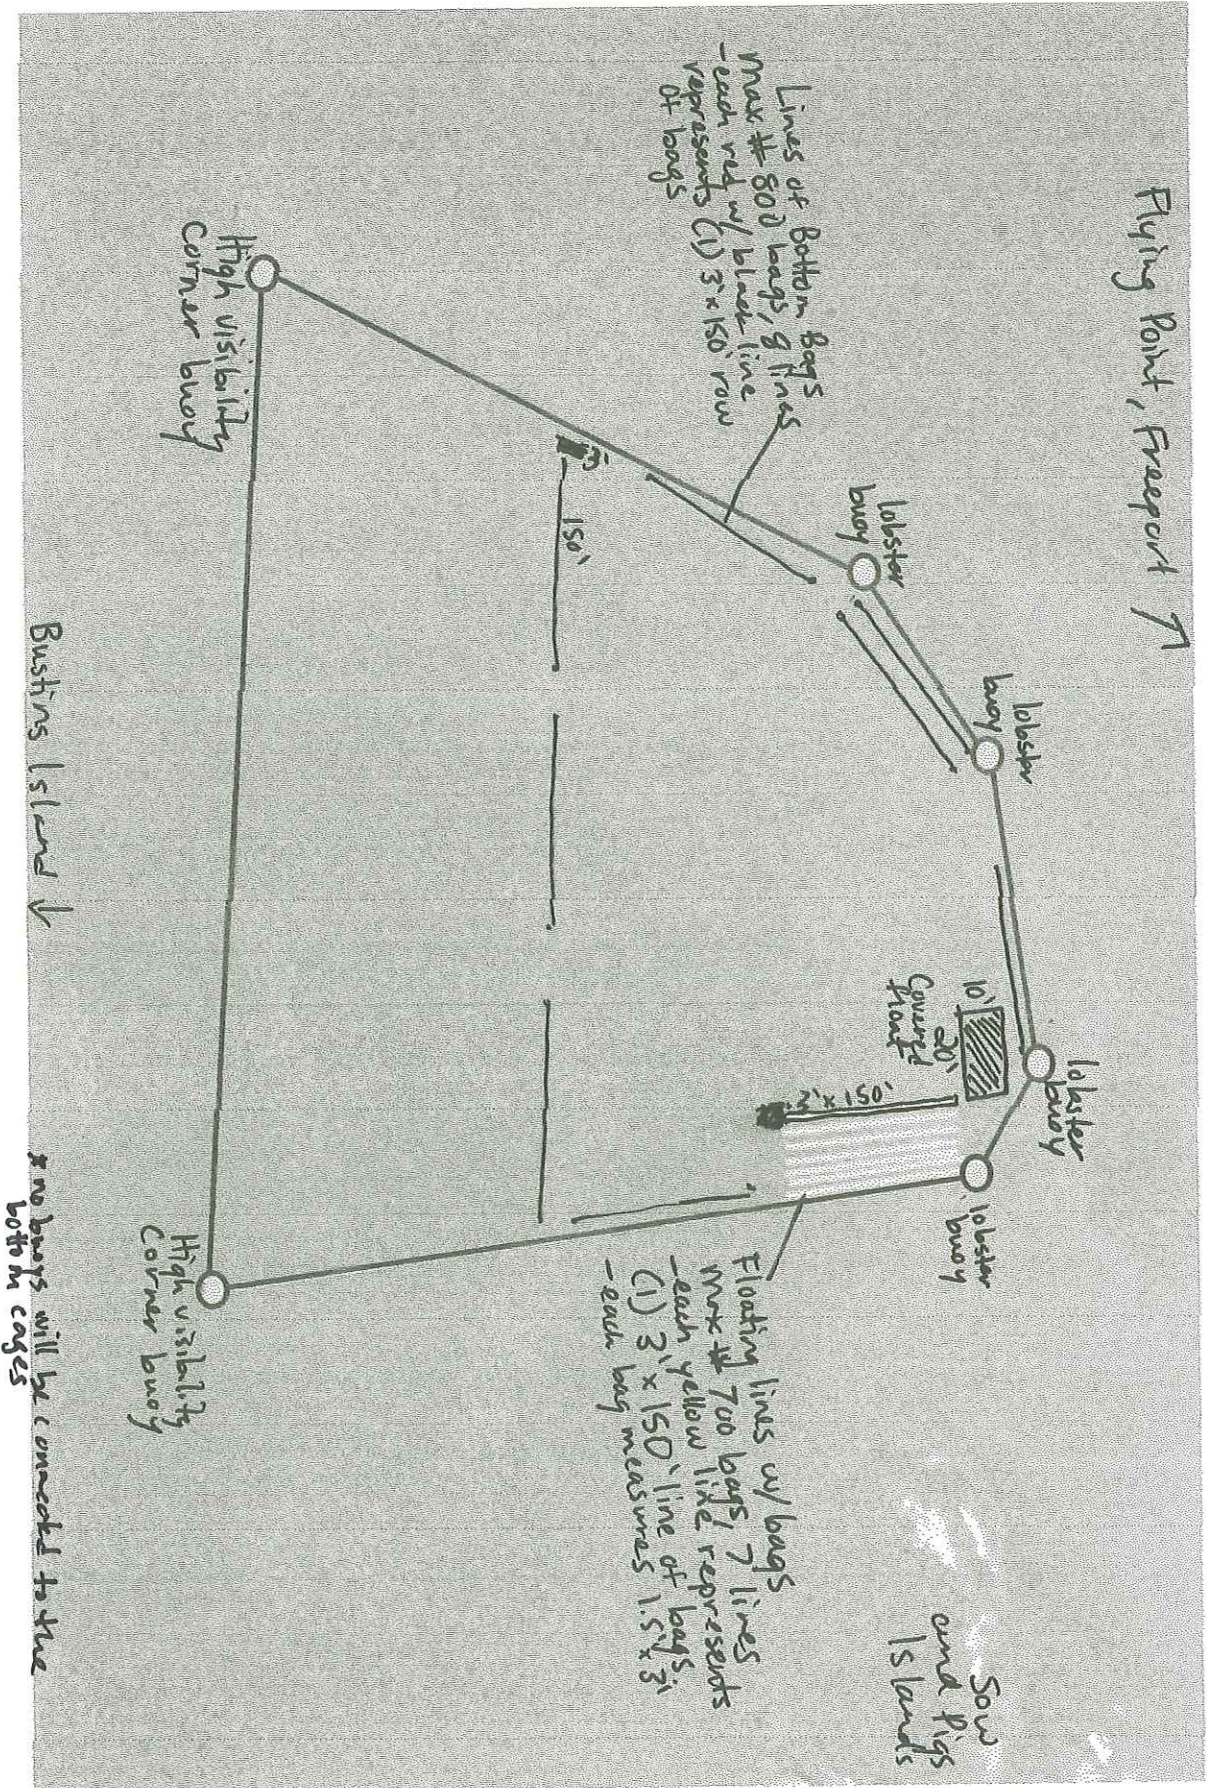 Flying Point, Freeport ↑
Sow
and Pigs
Islands
Lines of Bottom Bags
max # 800 bags, 8 lines
-each red w/ black line
represents (1) 3'x150' row
of bags
lobster
buoy
lobster
buoy
lobster
buoy
lobster
buoy
10'
20'
Covered
float
3'x150'
150'
3'
Floating lines w/bags
max # 700 bags, 7 lines
-each yellow line represents
(1) 3'x150' line of bags.
-each bag measures 1.5'x3'
High visibility
Corner buoy
High visibility
Corner buoy
Bustins Island ↓
* no buoys will be connected to the
bottom cages